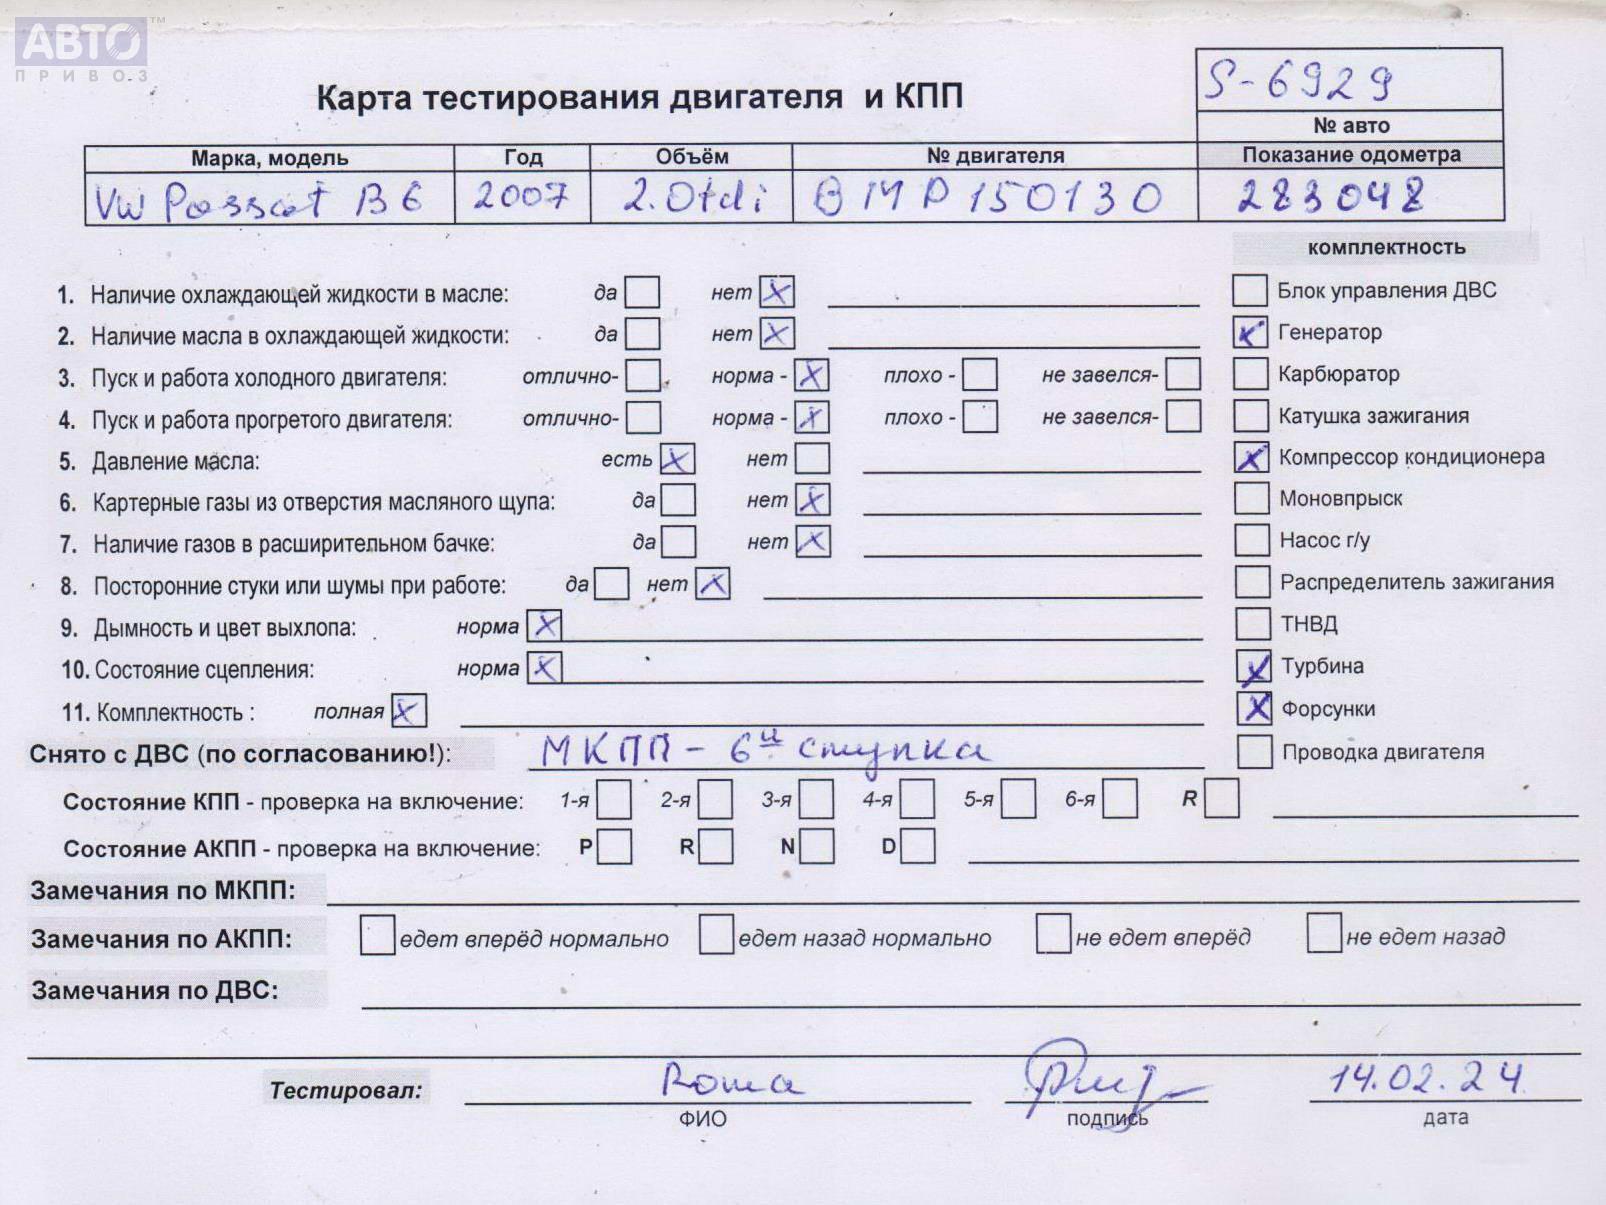 АВТО™
ПРИВОЗ
Карта тестирования двигателя и КПП
S-6929
№ авто
Марка, модель Год Объём № двигателя Показание одометра
VW Passat B6 2007 2.0tdi BMP150130 283048
комплектность
1. Наличие охлаждающей жидкости в масле: да нет X Блок управления ДВС
2. Наличие масла в охлаждающей жидкости: да нет X Генератор
3. Пуск и работа холодного двигателя: отлично- норма - X плохо - не завелся- Карбюратор
4. Пуск и работа прогретого двигателя: отлично- норма - X плохо - не завелся- Катушка зажигания
5. Давление масла: есть X нет X Компрессор кондиционера
6. Картерные газы из отверстия масляного щупа: да нет X Моновпрыск
7. Наличие газов в расширительном бачке: да нет X Насос г/у
8. Посторонние стуки или шумы при работе: да нет X Распределитель зажигания
9. Дымность и цвет выхлопа: норма X ТНВД
10. Состояние сцепления: норма X X Турбина
11. Комплектность : полная X X Форсунки
Снято с ДВС (по согласованию!): МКПП - 6и ступка Проводка двигателя
Состояние КПП - проверка на включение: 1-я 2-я 3-я 4-я 5-я 6-я R
Состояние АКПП - проверка на включение: P R N D
Замечания по МКПП:
Замечания по АКПП: едет вперёд нормально едет назад нормально не едет вперёд не едет назад
Замечания по ДВС:
Тестировал: Рома 14.02.24
ФИО подпись дата